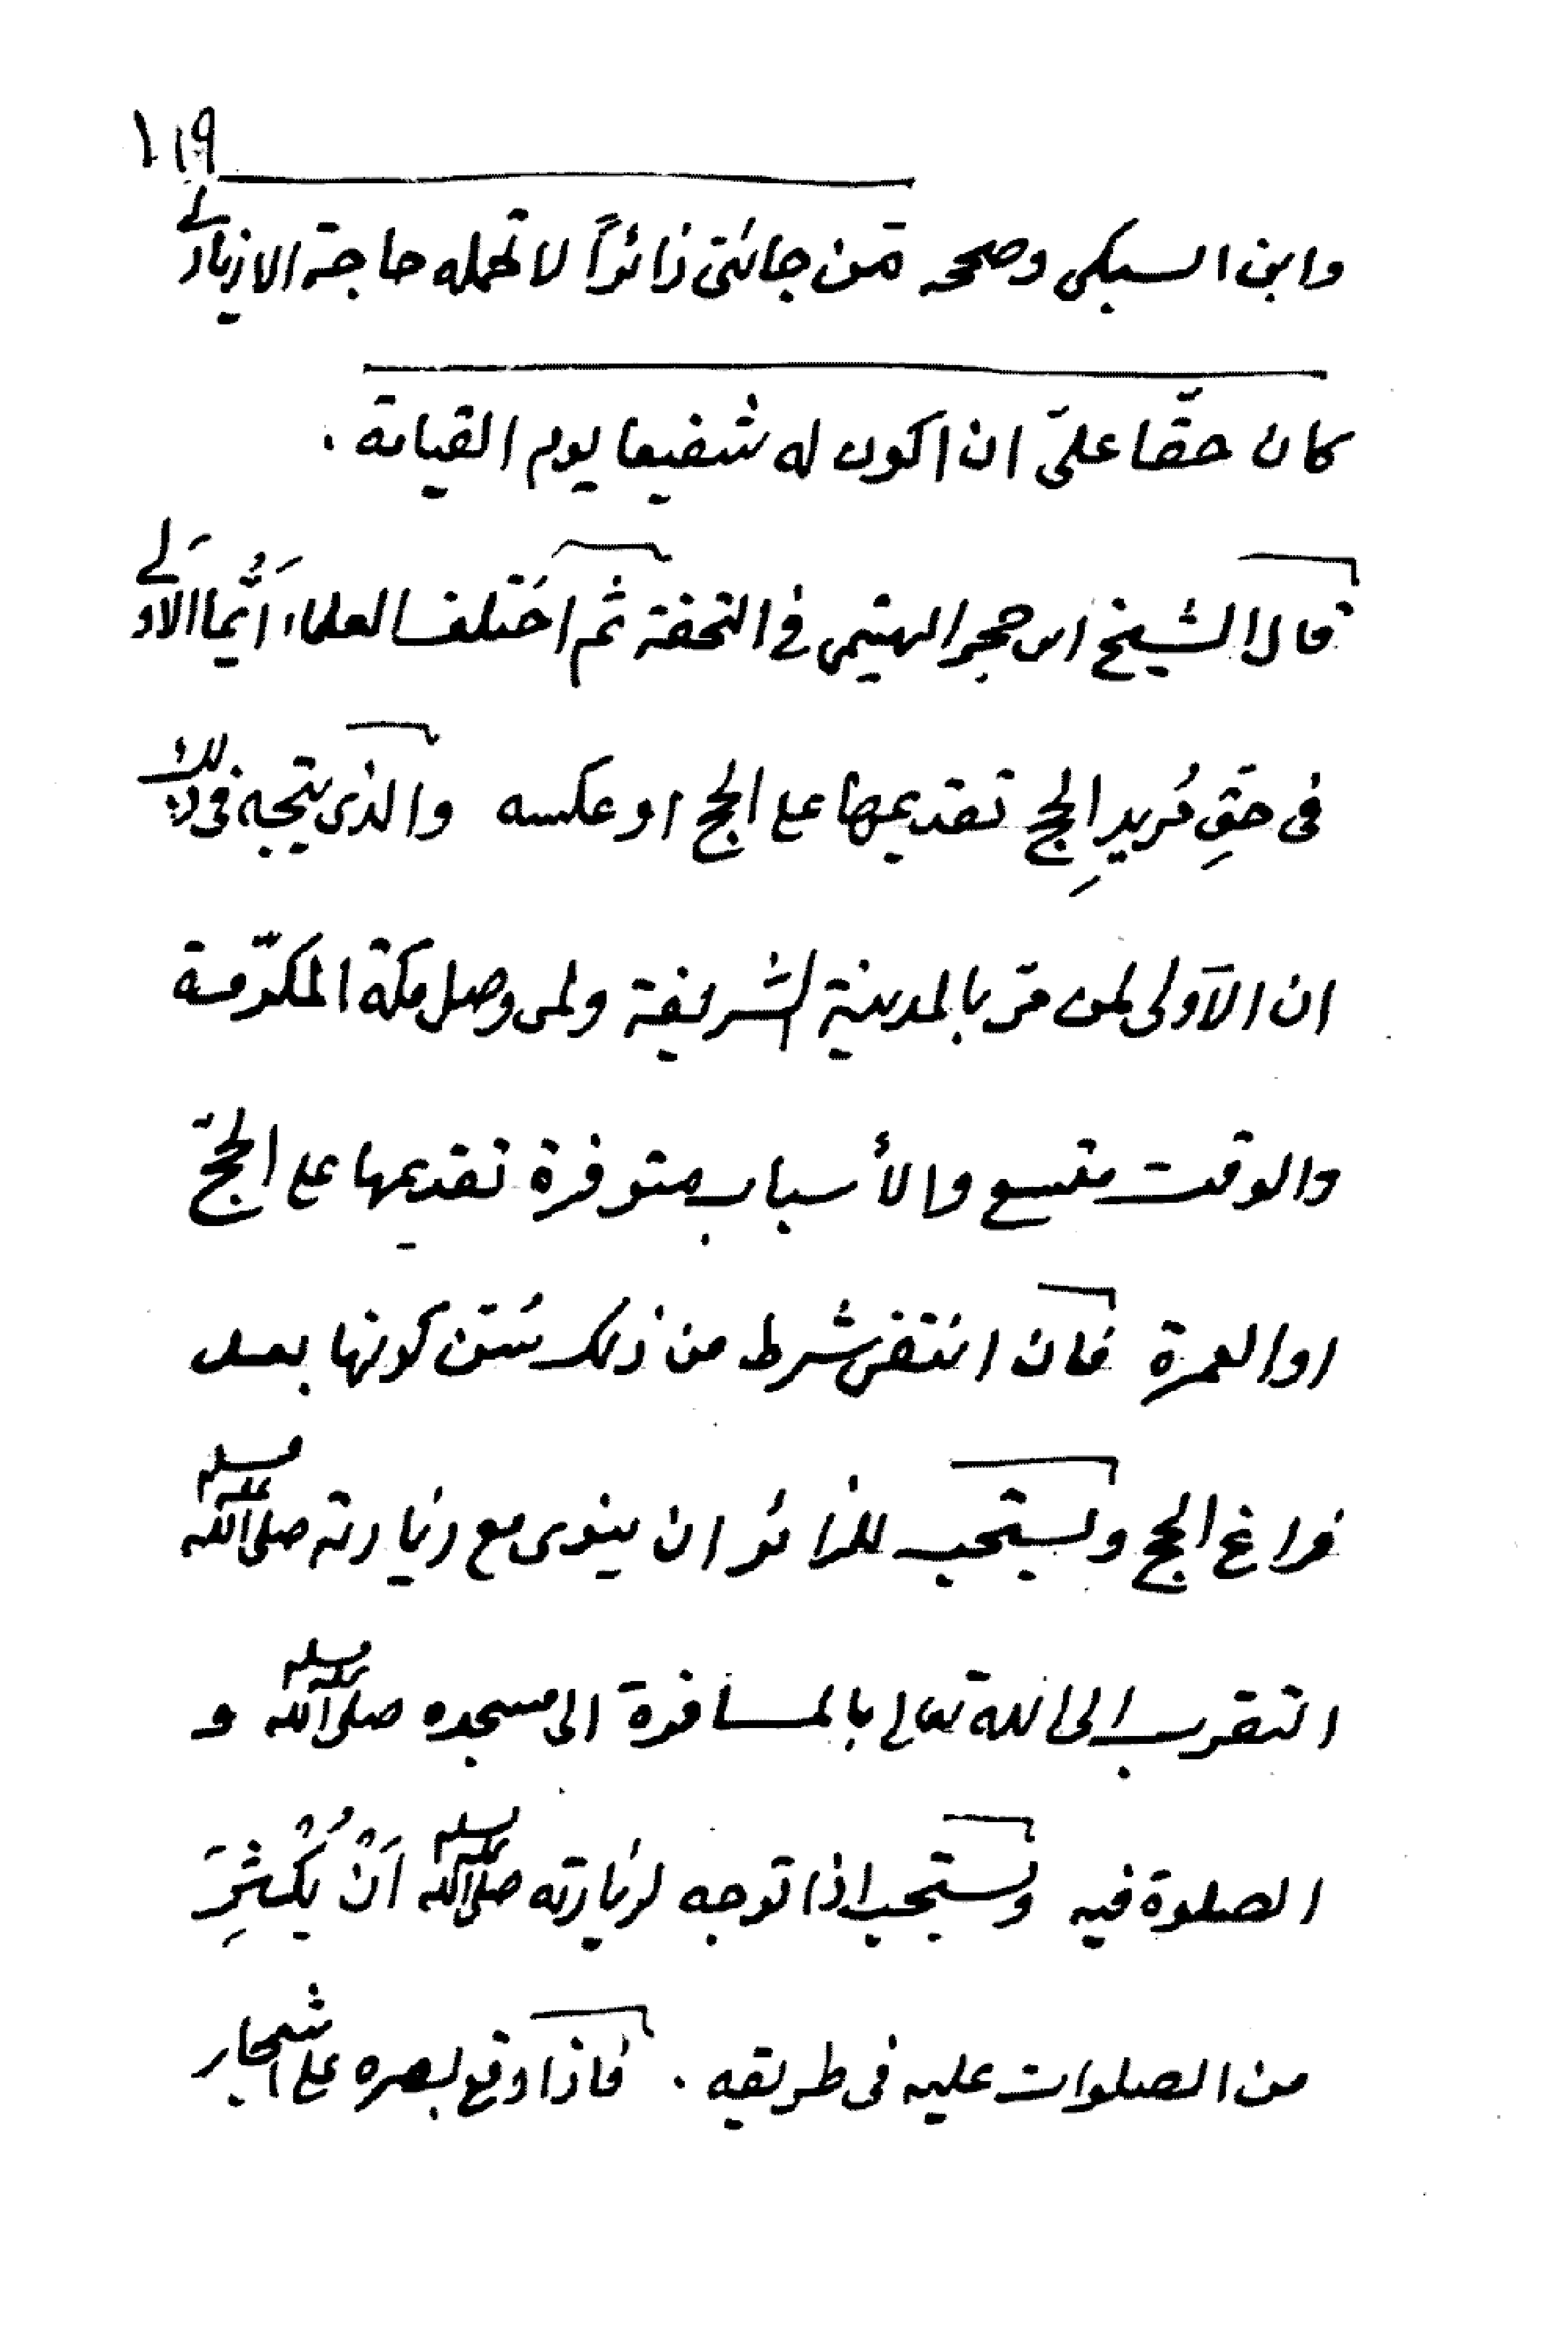 ١١٩
وابن السبكى وصححه مَن جائنى زائراً لا تحمله حاجة الا زيارتى
كان حقّا علىّ ان اكون له شفيعا يوم القيامة .
قال الشيخ ابن حجر الهيتمى فى التحفة ثم اختلف العلماء اَيُّما الاَولى
فى حَقِ مُريدِ الحج تقديمها على الحج او عكسه والذى يتجه فى ذلك
ان الاَولى لمن مرّ بالمدينة الشريفة ولمن وصل مكة المكرّمة
والوقت متسع والأسباب متوفرة تقديمها على الحجّ
او العمرة فان انتفى شرط من ذلك سُنّ كونها بعد
فراغ الحج ويستحب للزائر ان ينوى مع زيارته صلى الله عليه وسلم
التقرب الى الله تعالى بالمسافرة الى مسجده صلى الله عليه وسلم و
الصلوة فيه ويستحب اذا توجه لزيارته صلى الله عليه وسلم اَنْ يُكْثِرَ
من الصلوات عليه فى طريقه . فاذا وقع بصره على اشجار